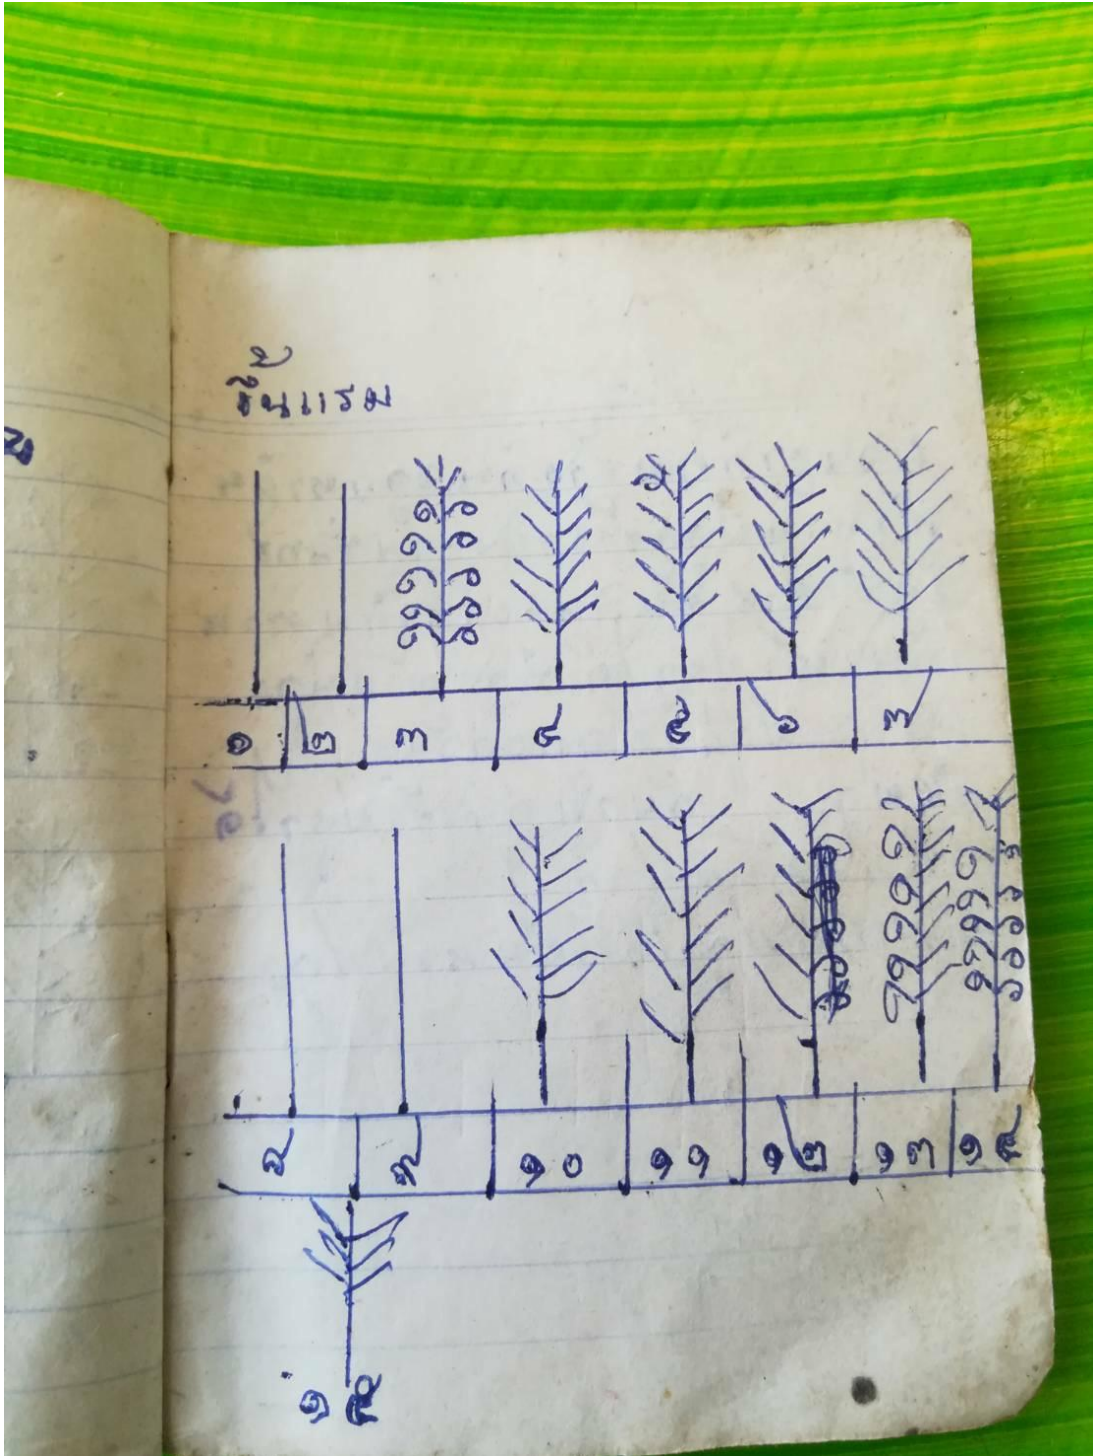 ขึ้นแรม
๑ ๒ ๓ ๔ ๕ ๖ ๗
๘ ๙ ๑๐ ๑๑ ๑๒ ๑๓ ๑๔
๑๕